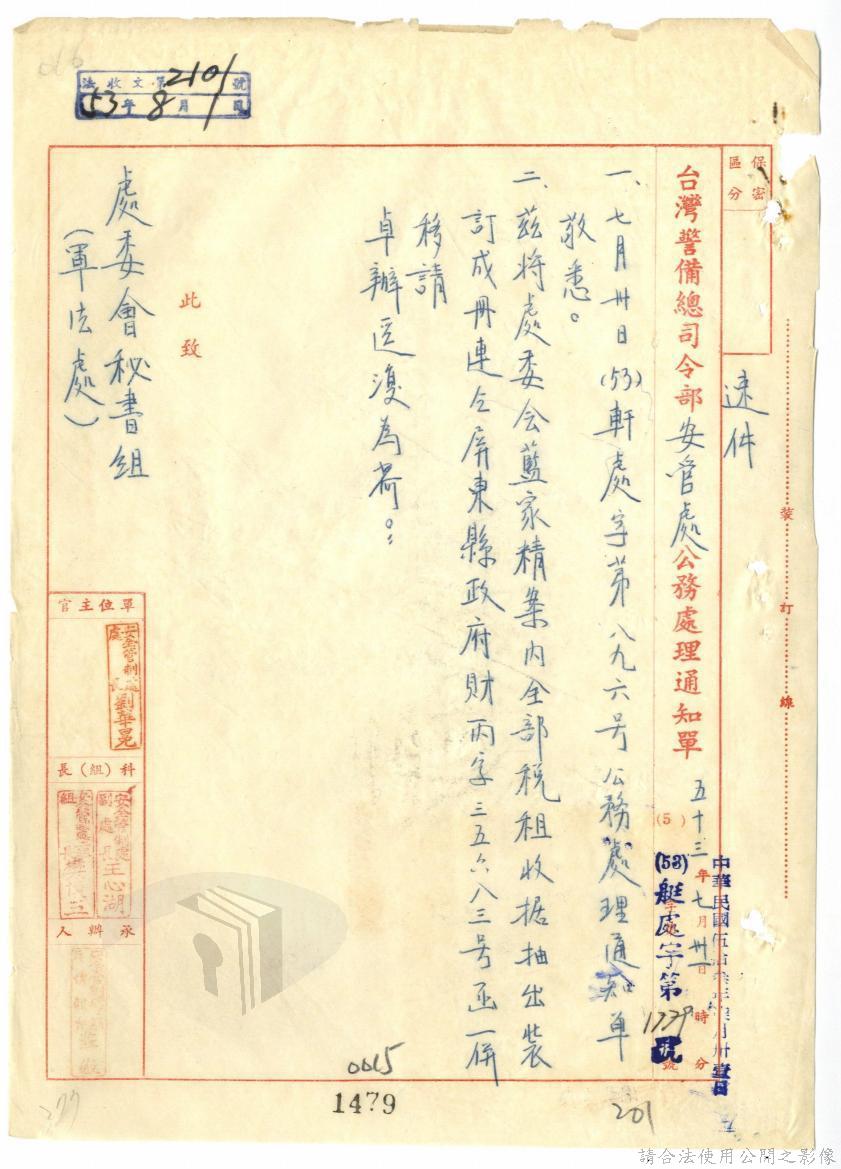 法收文第2101號
53年8月1日
保密
區分
速件
裝訂線
台灣警備總司令部安管處公務處理通知單
五十三年七月卅一日 時 分
中華民國伍拾叁年柒月卅壹日
(53)艇處字第1779號
一、七月卅日(53)軒處字第八九六号公務處理通知單
敬悉。
二、茲將處委会藍家精案內全部稅租收据抽出裝
訂成冊連仝屏東縣政府財丙字三五六八三号函一併
移請
卓辦逕復為荷。
此致
處委會秘書組
(軍法處)
單位主官
安全管制處
處長劉華冕
科(組)長
安全管制處
副處長王心湖
承辦人
0015
1479
201
277
請合法使用公開之影像